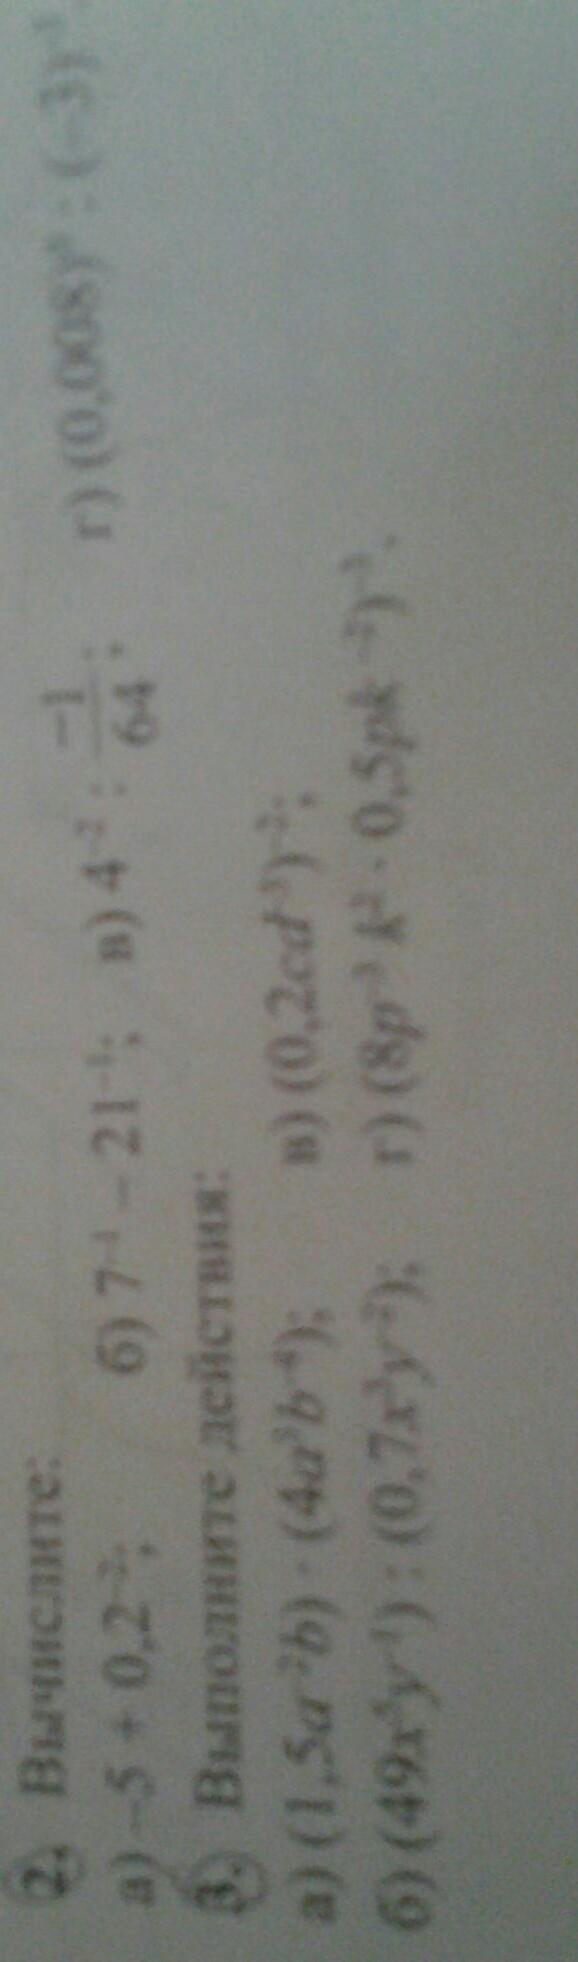 2. Вычислите:
а) −5 + 0,2⁻²; б) 7⁻¹ − 21⁻¹; в) 4⁻² : −1/64; г) (0,008)⁰ : (−3)⁻¹.
3. Выполните действия:
а) (1,5a⁻²b) · (4a³b⁻⁴); в) (0,2cd⁻³)⁻²;
б) (49x⁵y⁻¹) : (0,7x³y⁻²); г) (8p⁻³k² · 0,5pk⁻²)⁻³.